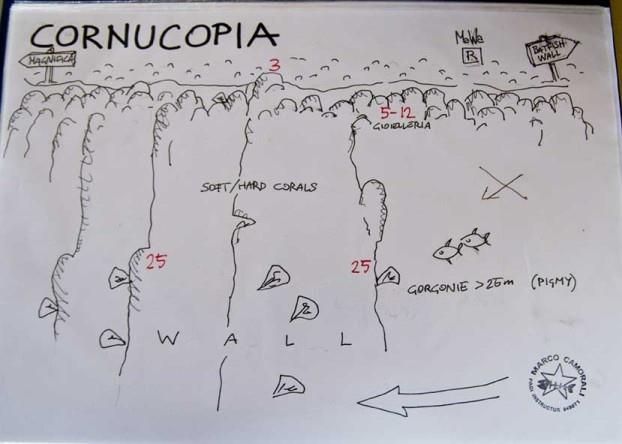 CORNUCOPIA
MAGNIFICA
MaWa
R
BATFISH
WALL
3
5-12
GIOIELLERIA
SOFT/HARD CORALS
25
25
GORGONIE > 25m (PIGMY)
W A L L
MARCO CAMORALI
PADI INSTRUCTOR